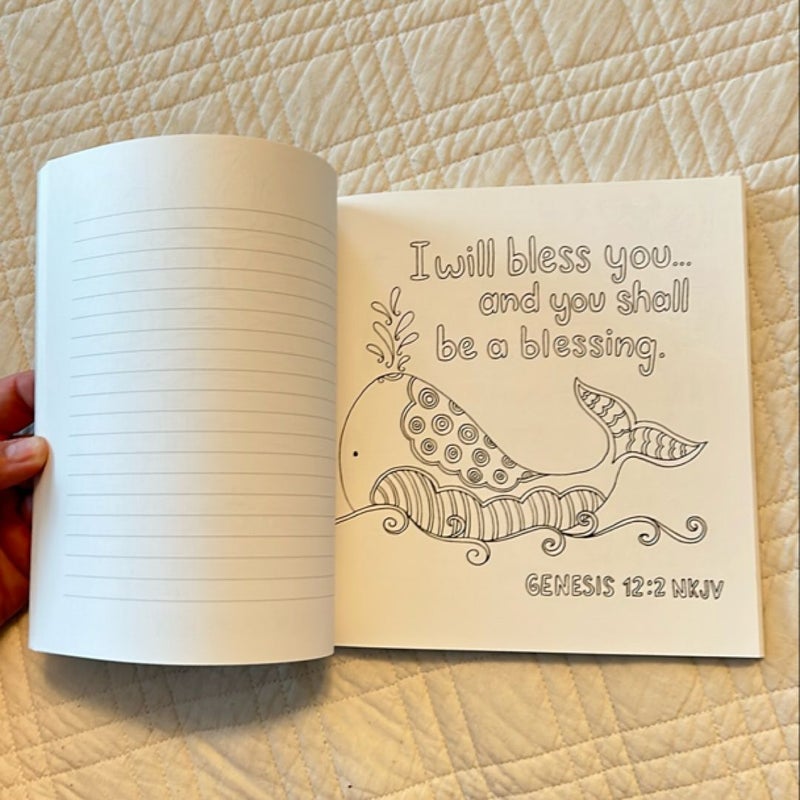 I will bless you...
and you shall
be a blessing.
GENESIS 12:2 NKJV